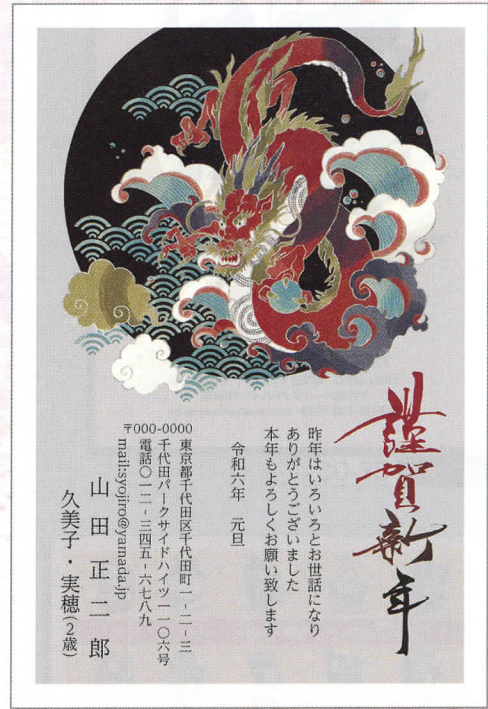 謹賀新年
昨年はいろいろとお世話になり
ありがとうございました
本年もよろしくお願い致します
令和六年　元旦
〒000-0000
東京都千代田区千代田町一-二-三
千代田パークサイドハイツ一一〇六号
電話〇一二-三四五-六七八九
mail:syojiro@yamada.jp
山田正二郎
久美子・実穂(2歳)